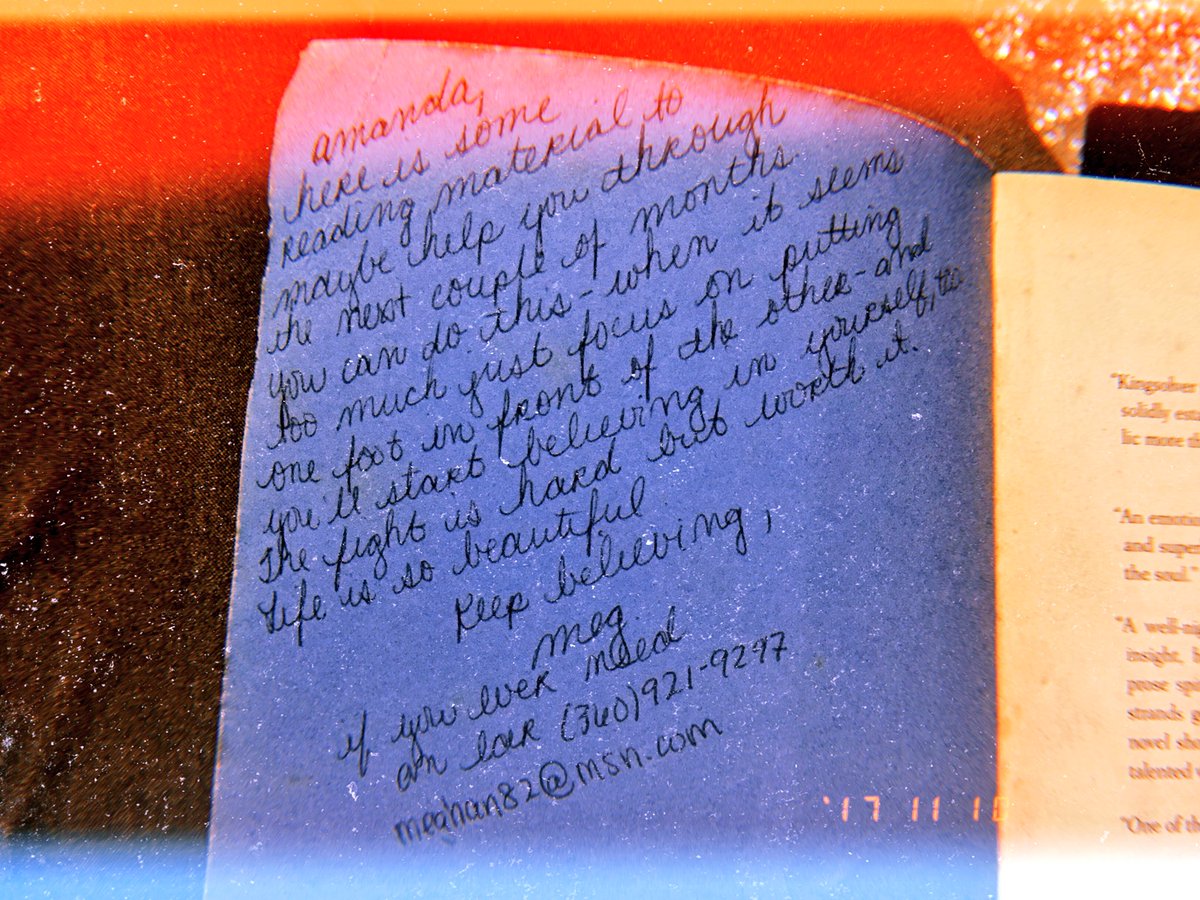 amanda,
here is some
reading material to
maybe help you through
the next couple of months.
you can do this - when it seems
too much just focus on putting
one foot in front of the other - and
you'll start believing in yourself, too
The fight is hard but worth it.
Life is so beautiful
Keep believing,
meg
if you ever need
an ear (360)921-9297
meghan82@msn.com
'17 11 10
"Kingsolver
solidly es
lic more th
"An emotio
and super
the soul."
"A well-ni
insight, h
prose sp
strands g
novel sho
talented w
"One of th